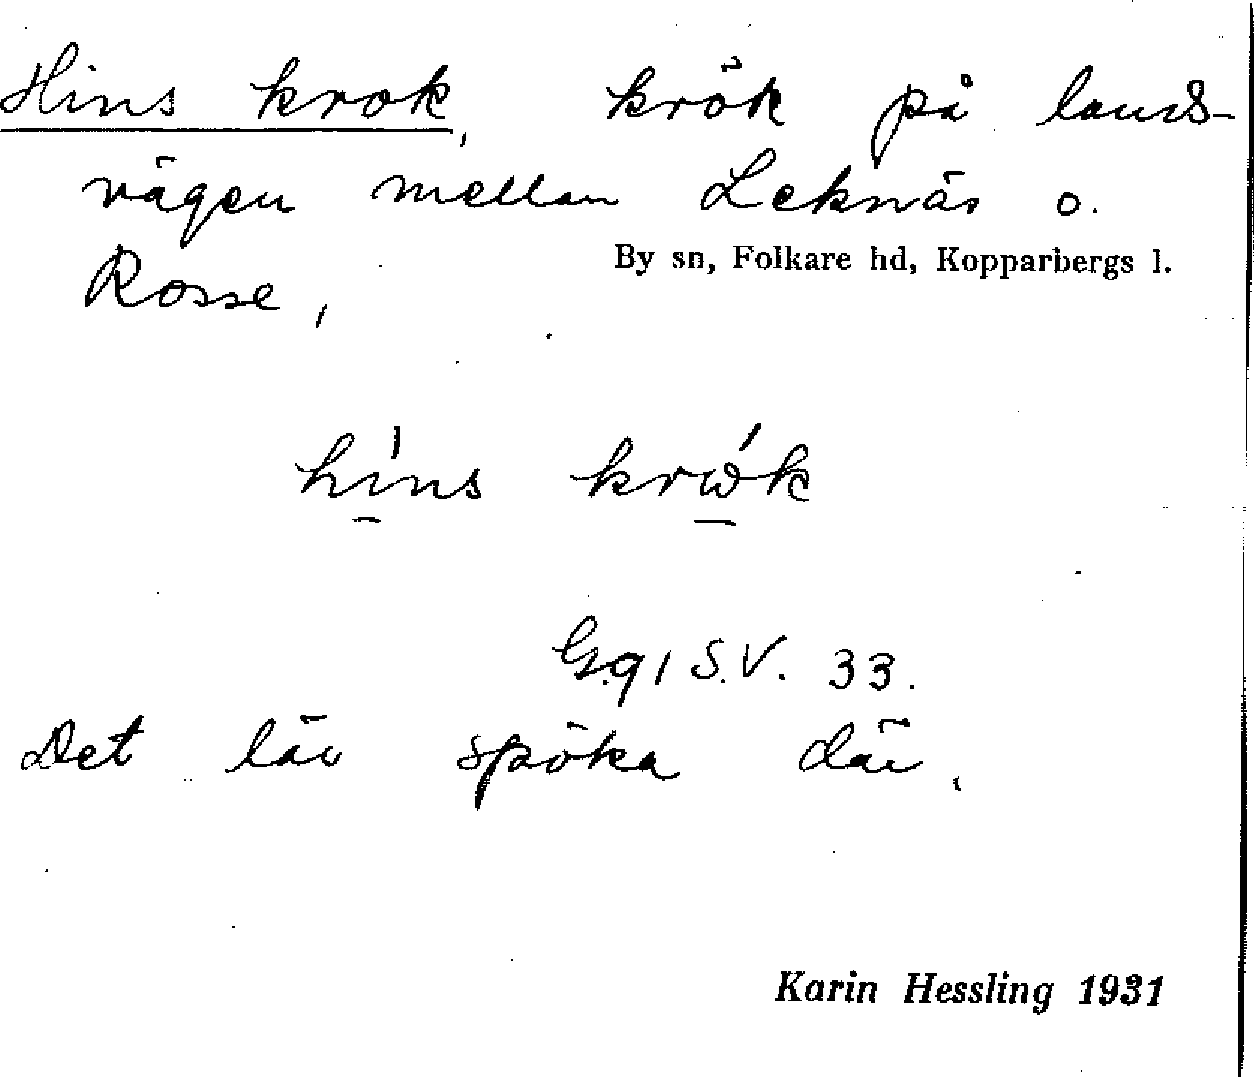 Hins krok, krök på lands-
vägen mellan Leknäs o.
By sn, Folkare hd, Kopparbergs l.
Rosse,
hı̍ns krώk
G.q 1 S.V. 33.
Det lär spöka där.
Karin Hessling 1931